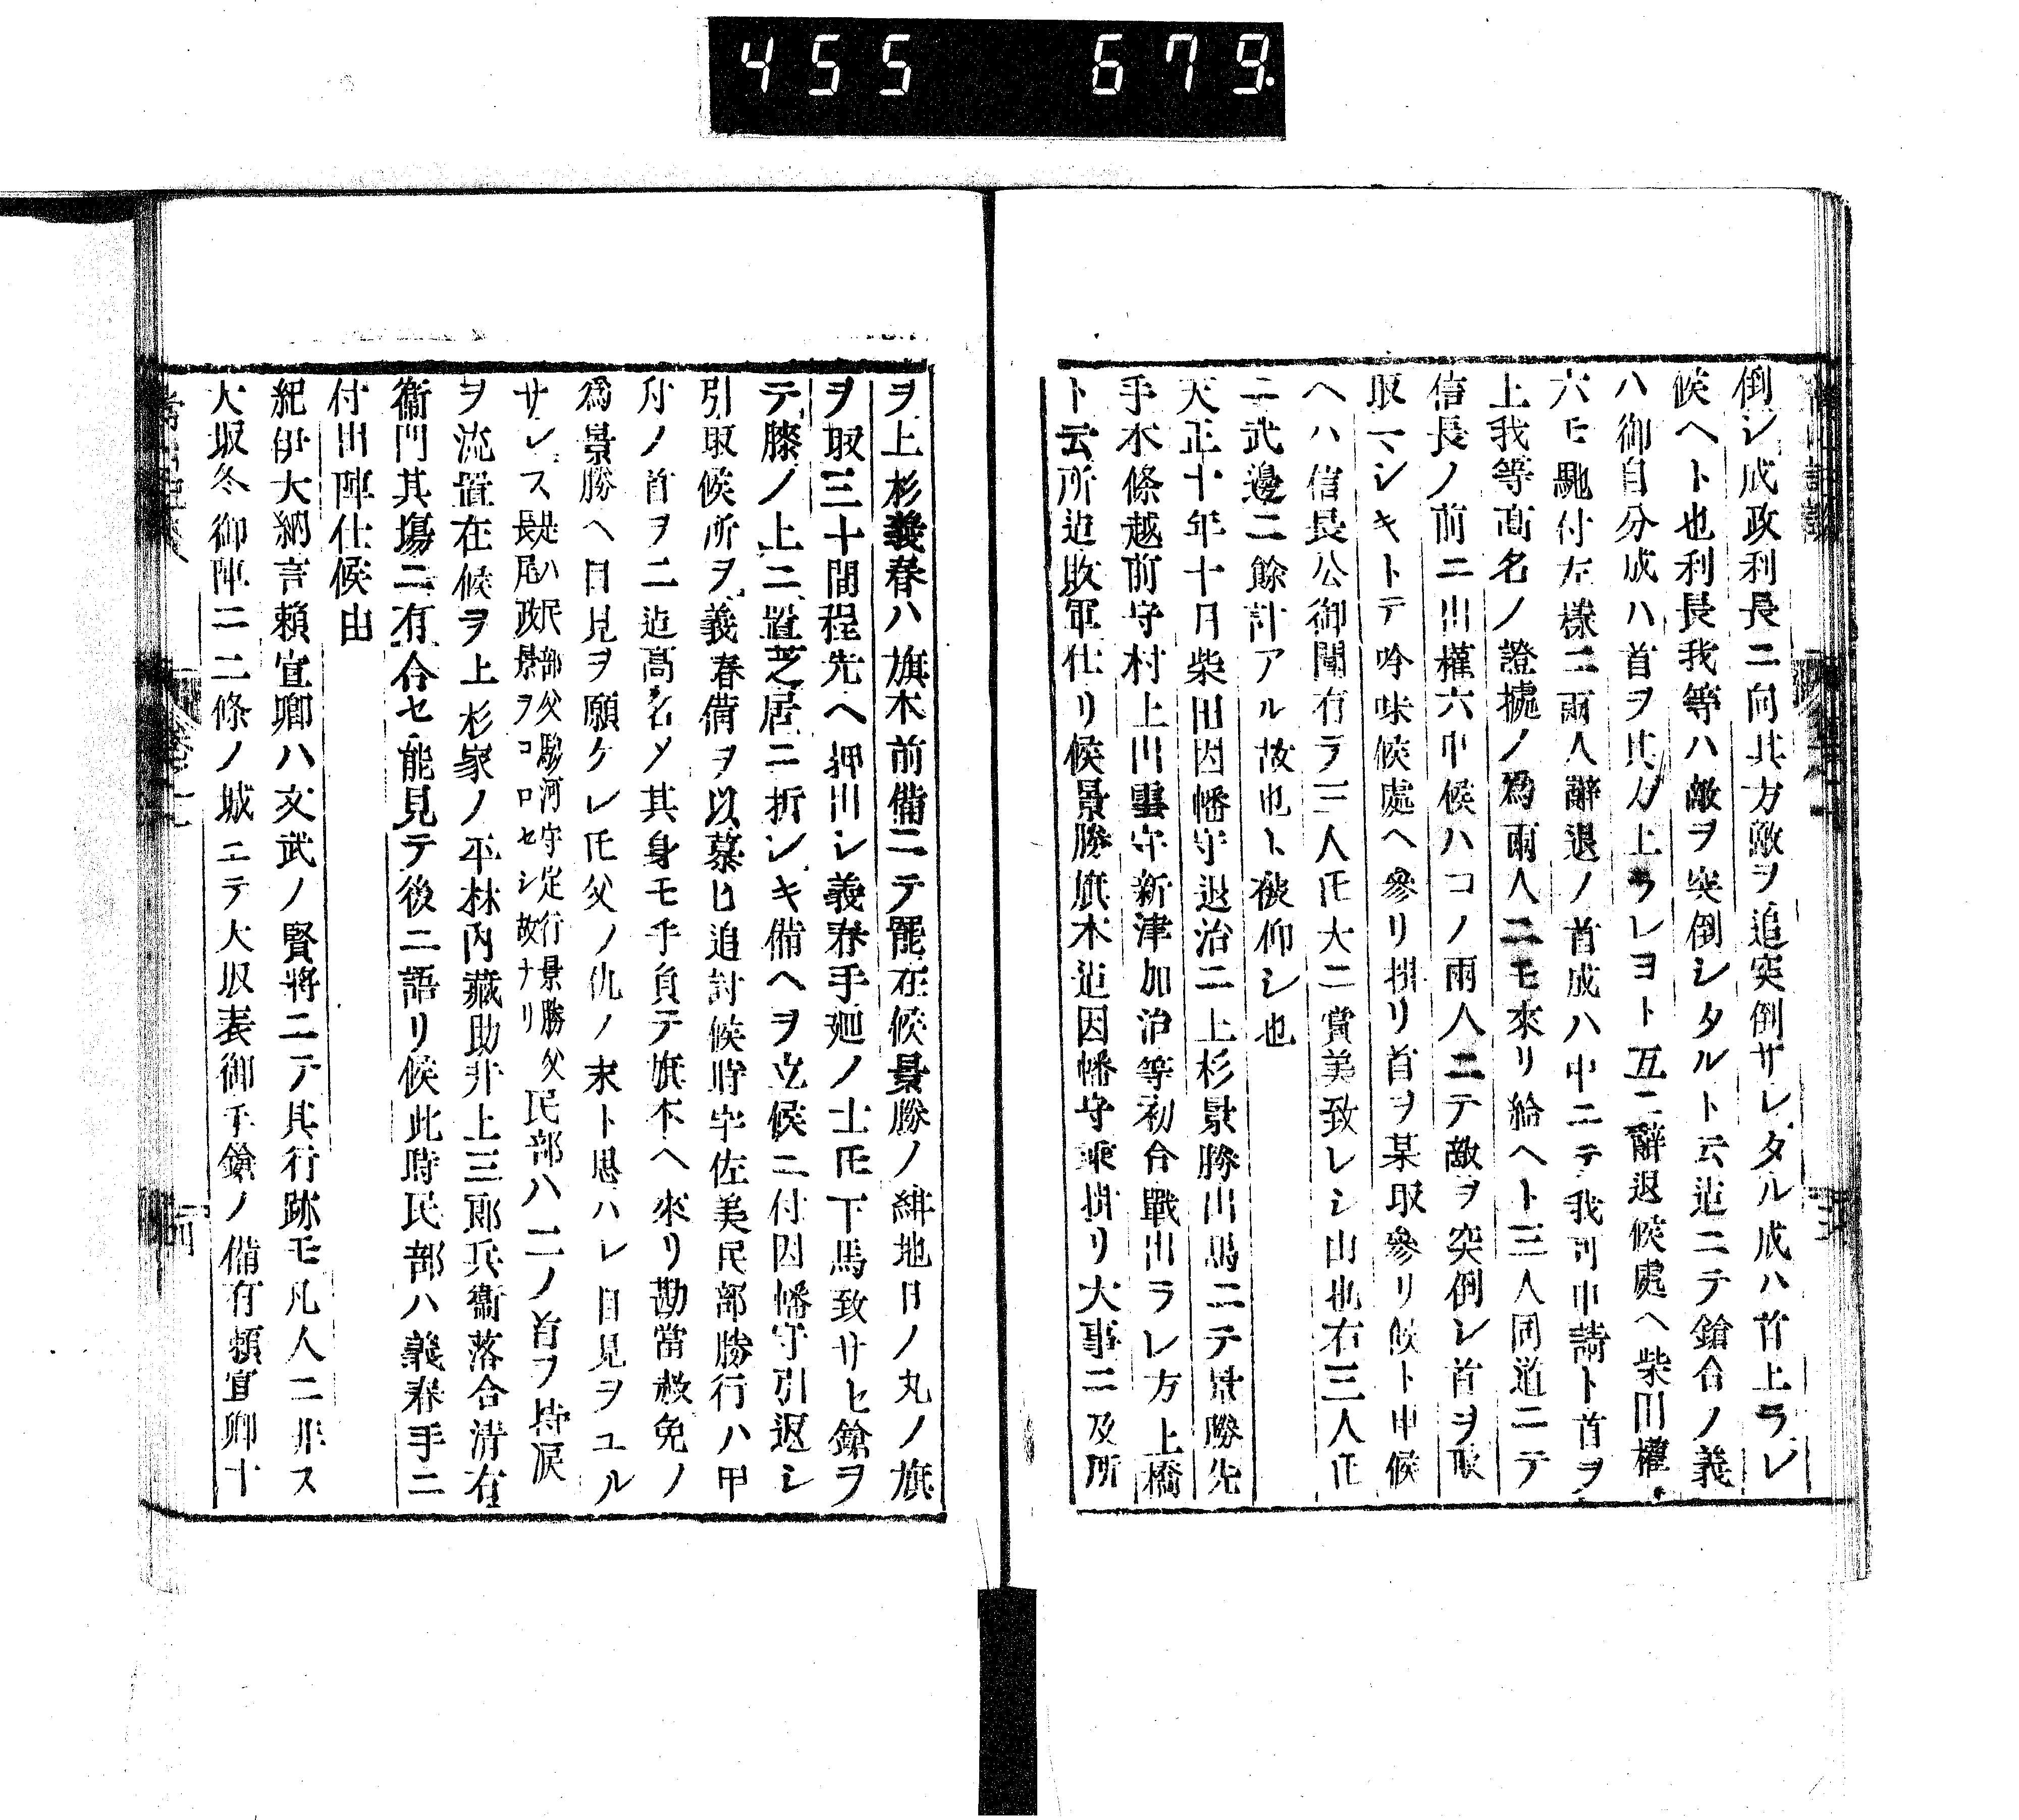 455 679.
倒シ成政利長ニ向其方敵ヲ追突倒サレタル成ハ首上ラレ
候ヘト也利長我等ハ敵ヲ突倒シタルト云迠ニテ鎗合ノ義
ハ御自分成ハ首ヲ其方上ラレヨト互ニ辭退候處ヘ柴田權
六モ馳付左樣ニ兩人辭退ノ首成ハ中ニテ我可申請ト首ヲ
上我等高名ノ證據ノ爲兩人ニモ來リ給ヘト三人同道ニテ
信長ノ前ニ出權六申候ハコノ兩人ニテ敵ヲ突倒レ首ヲ取
取マシキトテ吟味候處ヘ參リ掛リ首ヲ某取參リ候ト申候
ヘハ信長公御聞有テ三人𪜈大ニ賞美致レシ由也右三人𪜈
ニ武邊ニ餘計アル故也ト被仰シ也
天正十年十月柴田因幡守退治ニ上杉景勝出馬ニテ景勝先
手本條越前守村上川雲守新津加治等初合戰出ラレ方上橋
ト云所迠敗軍仕リ候景勝旗本迠因幡守乘掛リ大事ニ及所
ヲ上杉義春ハ旗本前備ニテ罷在候景勝ノ緋地日ノ丸ノ旗
ヲ取三十間程先ヘ押出シ義春手廻ノ士𪜈下馬致サセ鎗ヲ
テ膝ノ上ニ置芝居ニ折シキ備ヘヲ立候ニ付因幡守引返シ
引取候所ヲ義春備ヲ以慕ヒ追討候時宇佐美民部勝行ハ甲
付ノ首ヲ二迠高名メ其身モ手負テ旗本ヘ來リ勘當赦免ノ
爲景勝ヘ目見ヲ願ケレ𪜈父ノ仇ノ末ト思ハレ目見ヲユル
サレス是ハ民部父駿河守定行景勝父長尾政景ヲコロセシ故ナリ民部ハ二ノ首ヲ持淚
ヲ流置在候ヲ上杉家ノ平林内藏助井上三郎兵衞落合清右
衞門其塲ニ有合セ能見テ後ニ語リ候此時民部ハ義春手ニ
付出陣仕候由
紀伊大納言賴宣卿ハ文武ノ賢將ニテ其行跡モ凡人ニ非ス
大坂冬御陣ニ二條ノ城ニテ大坂表御手鎗ノ備有賴宣卿十